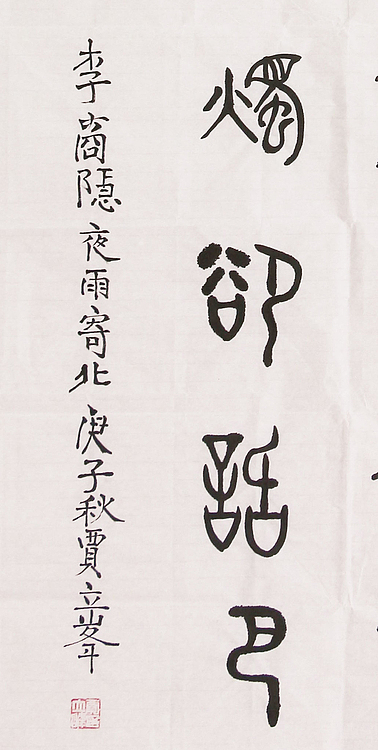 燭卻話巴
李商隱夜雨寄北 庚子秋賈立峯